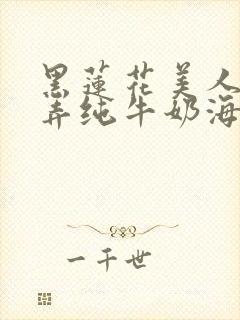 黑蓮花美人
弄纯牛奶海
一千世